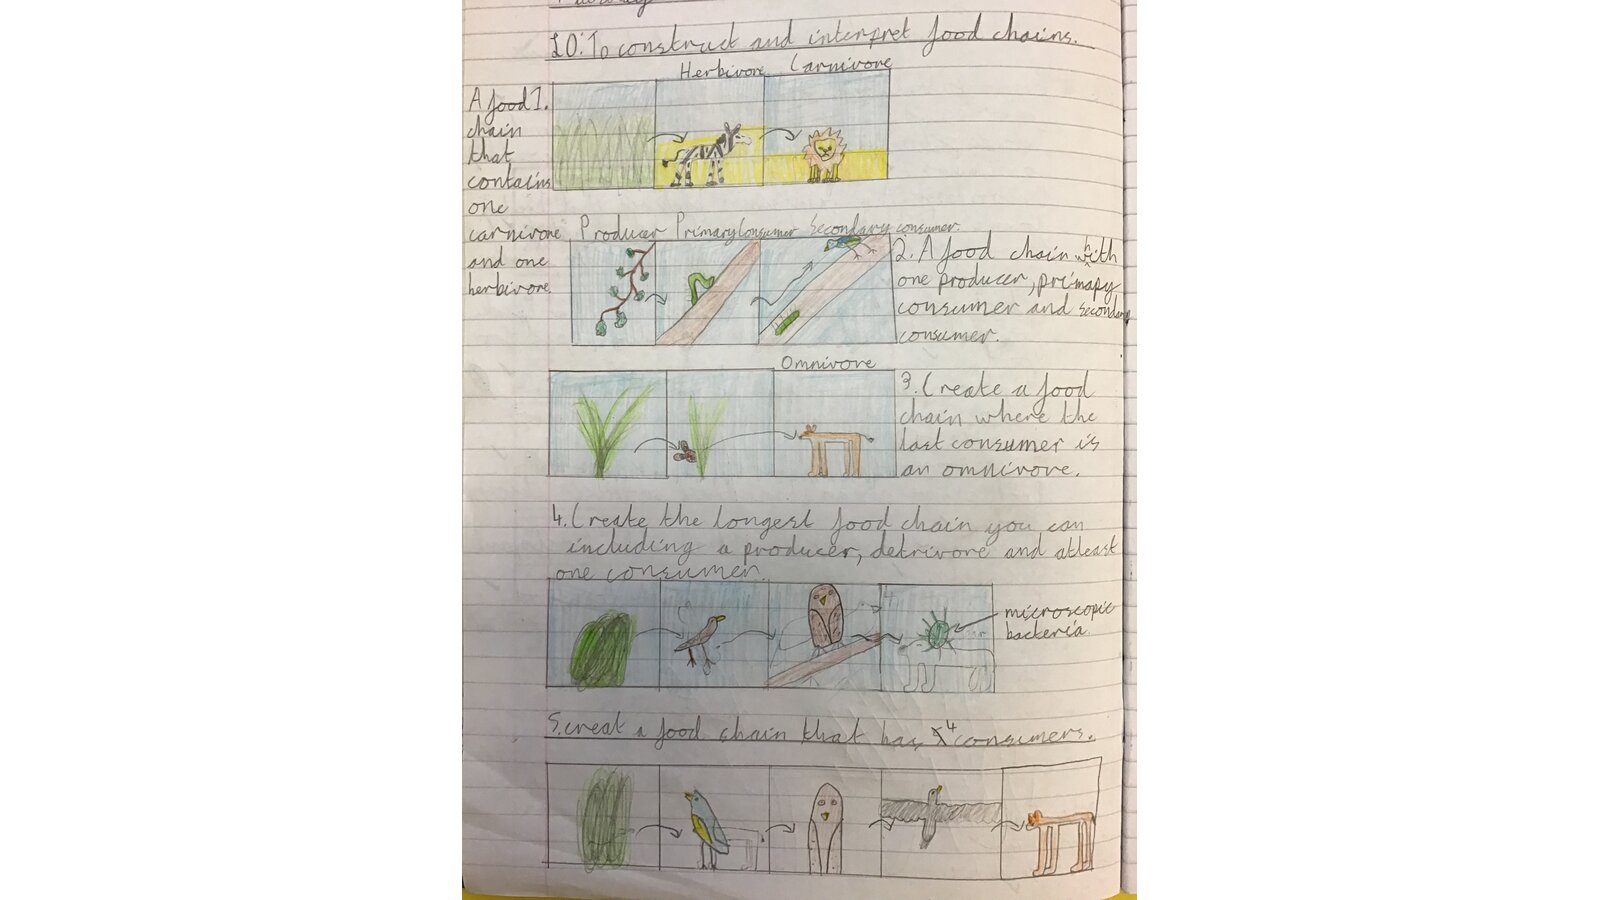 LO: To construct and interpret food chains.
Herbivore Carnivore
A food 1.
chain
that
contains
one
carnivore
and one
herbivore.
Producer Primary Consumer Secondary consumer.
2. A food chain with
one producer, primapy
consumer and secondary
consumer.
Omnivore
3. Create a food
chain where the
last consumer is
an omnivore.
4. Create the longest food chain you can
including a producer, detrivore and atleast
one consumer.
microscopic
backeria.
5. creat a food chain that has 4 consumers.